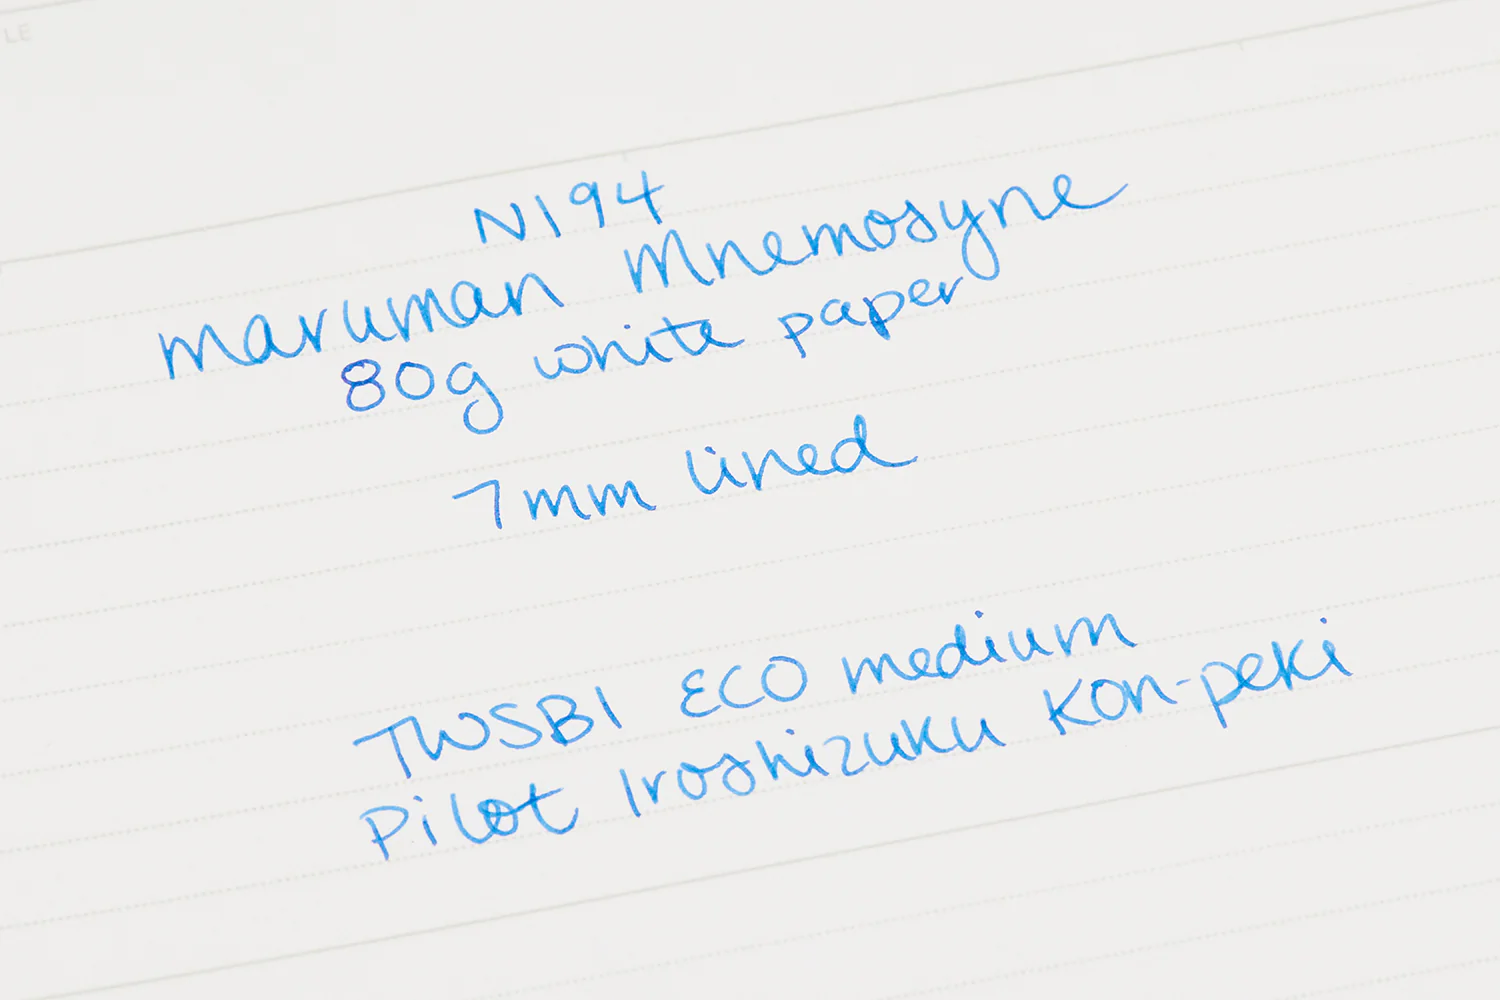 LE
N194
maruman Mnemosyne
80g white paper
7mm lined
TWSBI ECO medium
Pilot Iroshizuku Kon-peki